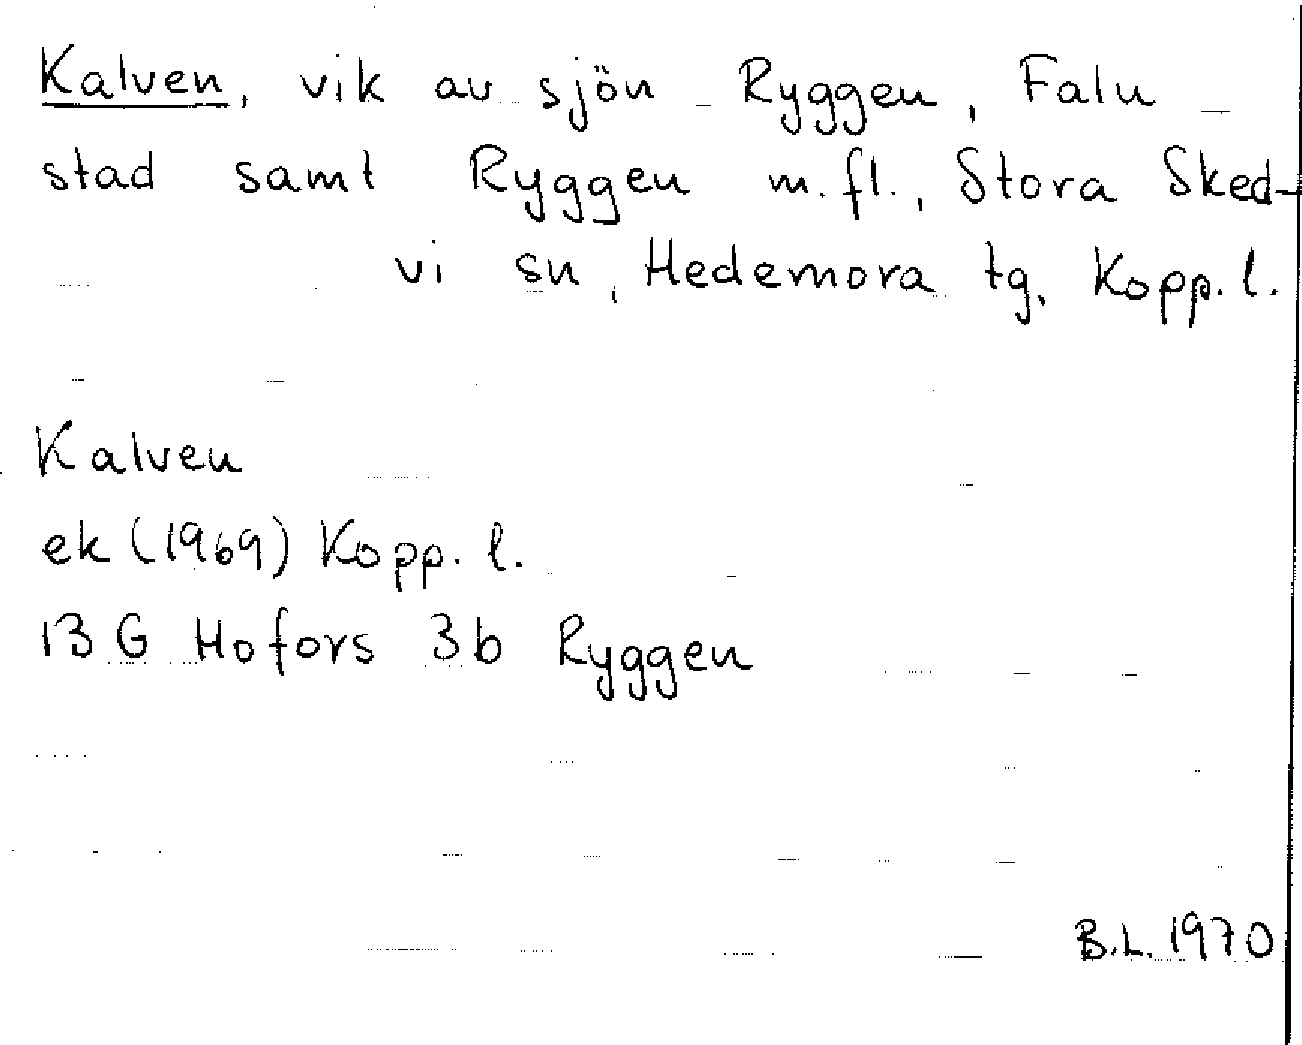 Kalven, vik av sjön Ryggen, Falu
stad samt Ryggen m.fl., Stora Sked-
vi sn, Hedemora tg, Kopp. l.
Kalven
ek (1969) Kopp. l.
13 G Hofors 3b Ryggen
B.L. 1970